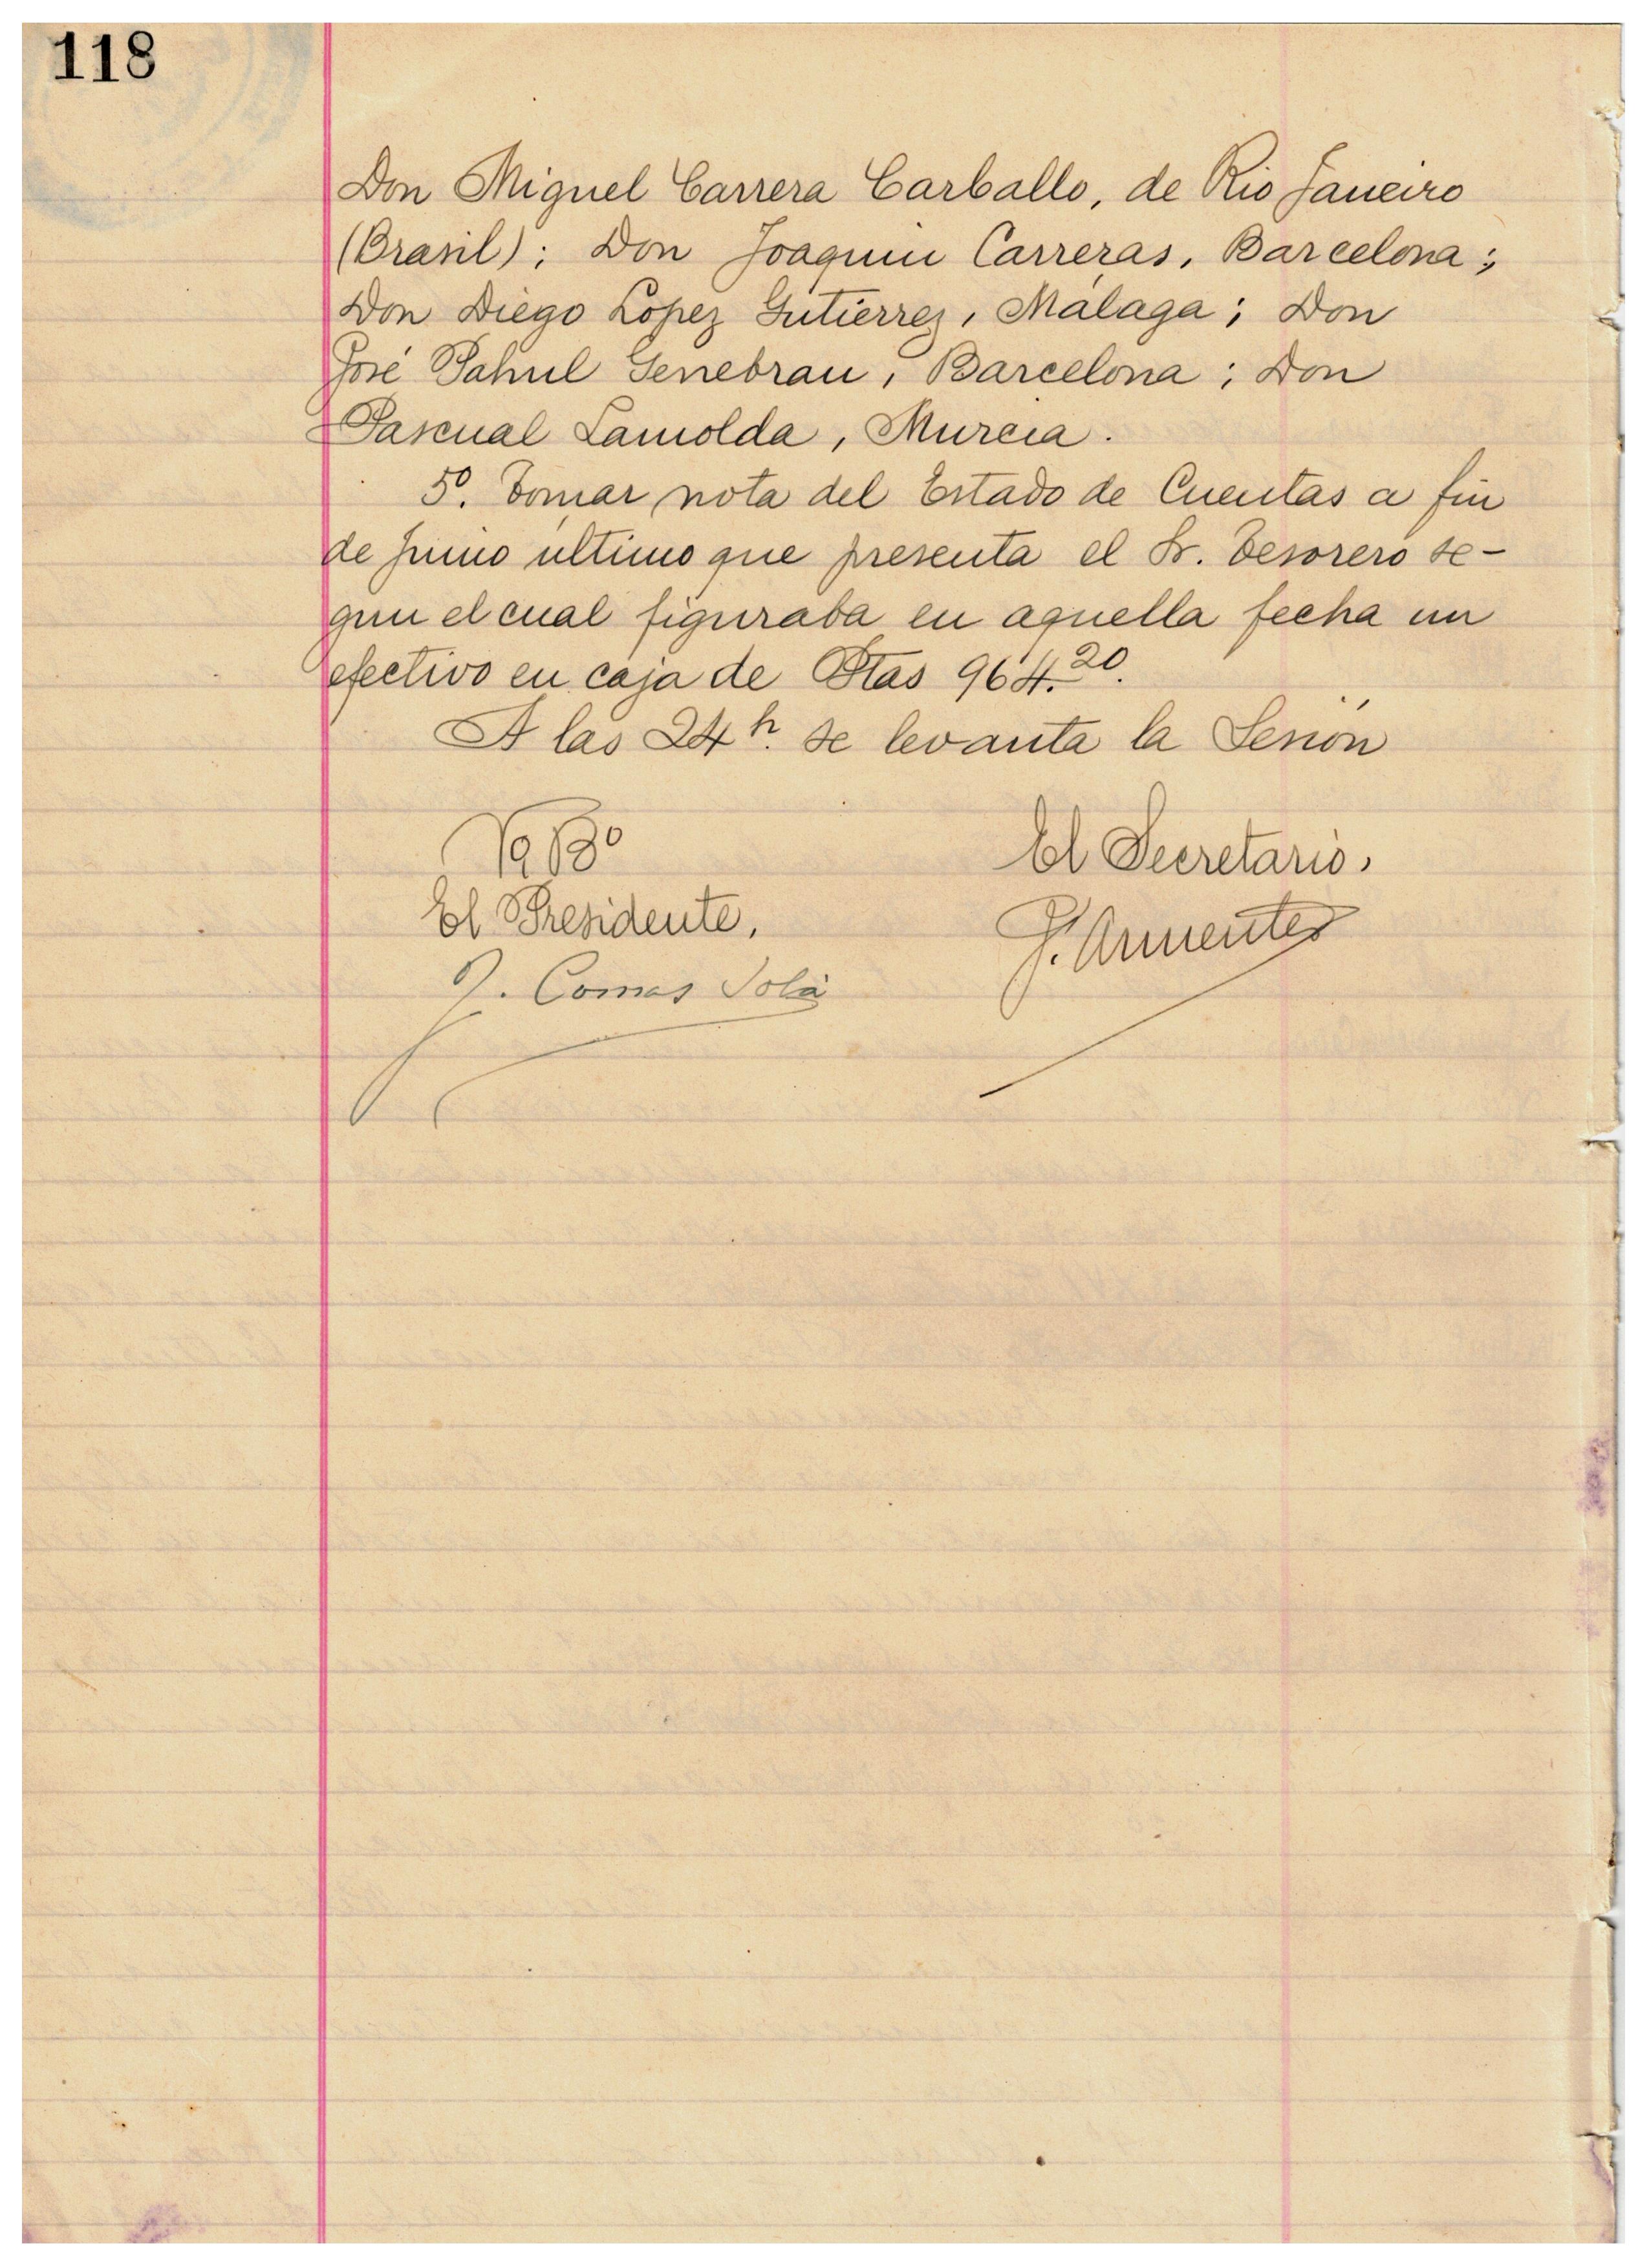 118
Don Miguel Carrera Carballo, de Rio Janeiro
(Brasil); Don Joaquin Carreras, Barcelona;
Don Diego López Gutiérrez, Málaga; Don
José Pahul Genebrau, Barcelona; Don
Pascual Lamolda, Murcia.
5º. Tomar nota del Estado de Cuentas a fin
de Junio último que presenta el Sr. Tesorero se-
gun el cual figuraba en aquella fecha un
efectivo en caja de Ptas 964.20.
A las 24 h. se levanta la Sesión
Vº Bº
El Secretario,
El Presidente,
P. Armenter
J. Comas Solá